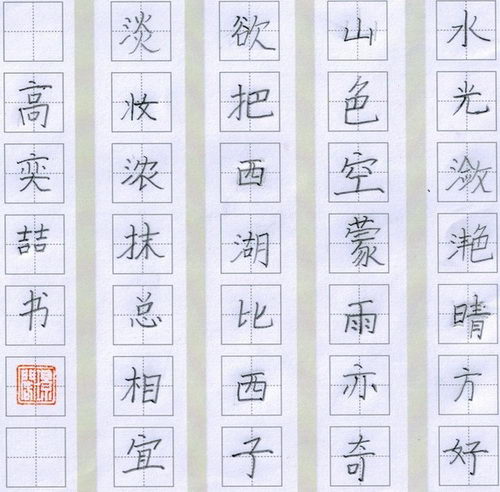 水光潋滟晴方好
山色空蒙雨亦奇
欲把西湖比西子
淡妆浓抹总相宜
高奕喆书